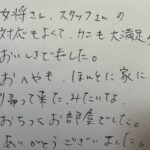 女将さん、スタッフさんの
対応もよくて、カニも大満足♪
おいしさでました。
おへやも、ほんとに家に
帰って来た、みたいな、
おちつくお部屋でした。
ありがとうございました。